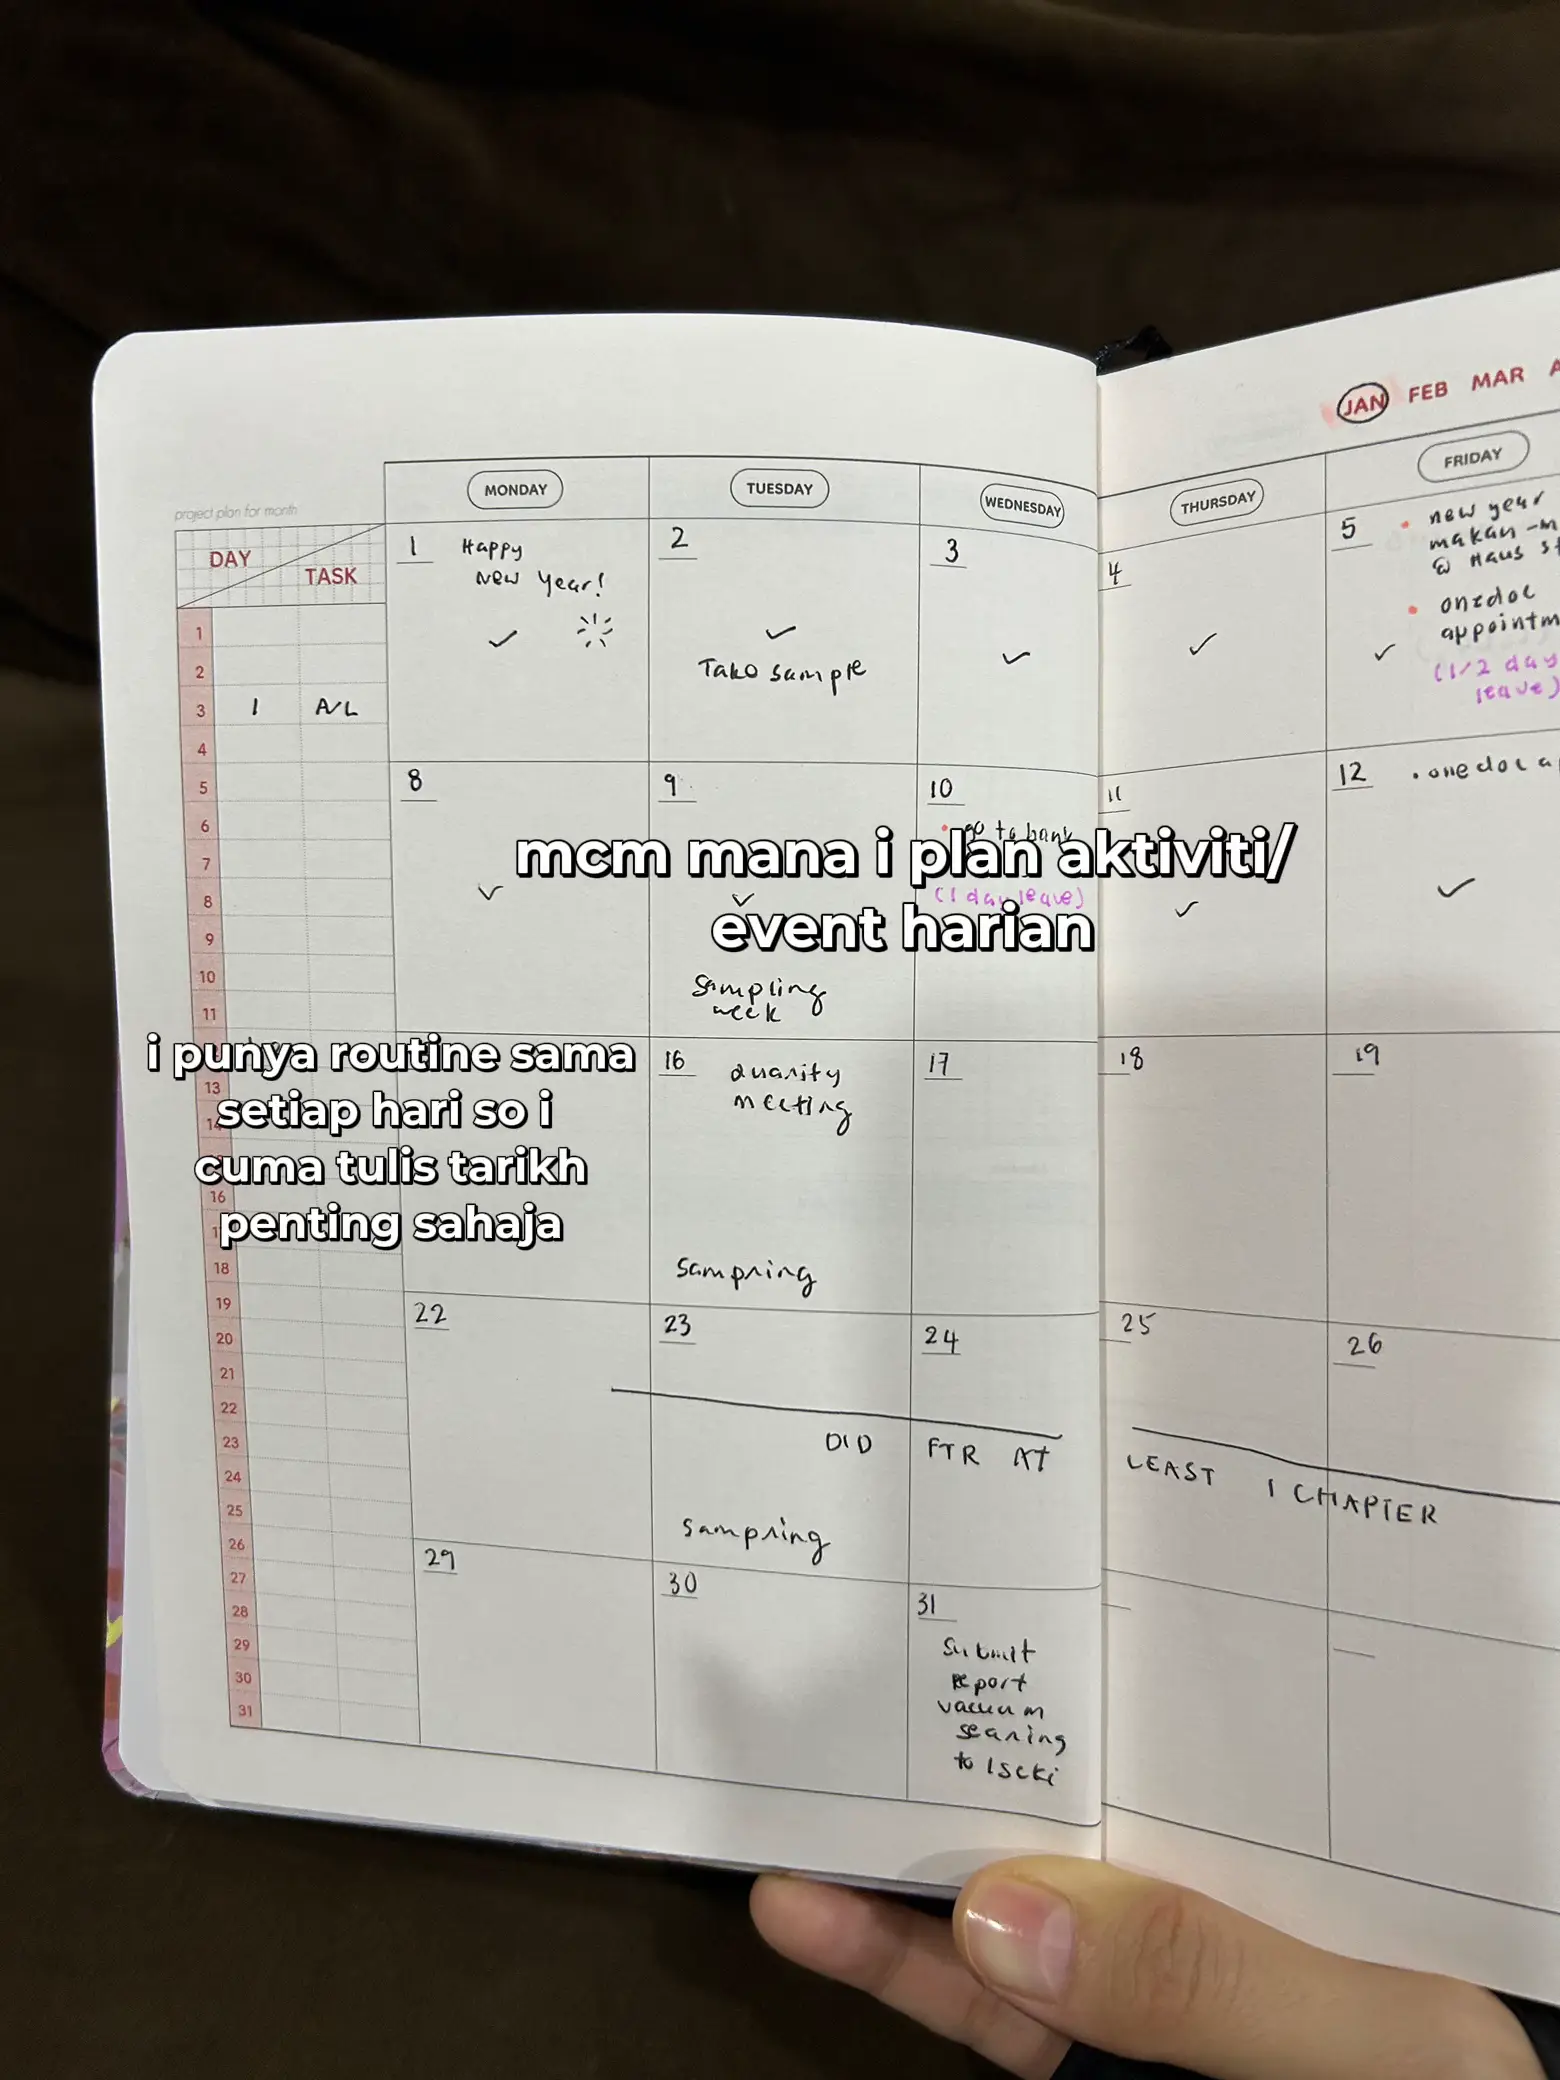 JAN FEB MAR A
project plan for month
DAY
TASK
MONDAY
TUESDAY
WEDNESDAY
THURSDAY
FRIDAY
1 Happy
New Year!
2
Take sample
3
4
5
• new year
makan-m
@ Haus st
• onedoc
appointm
(1/2 day
leave)
1
2
3 1 A/L
4
5
6
7
8
9
10
11
13
14
16
18
19
20
21
22
23
24
25
26
27
28
29
30
31
8
9
Sampling
week
10
• go to bank
(1 day leave)
11
12 • onedoc a
mcm mana i plan aktiviti/
event harian
i punya routine sama
setiap hari so i
cuma tulis tarikh
penting sahaja
16 Quality
meeting
Sampling
17
18
19
22
23
24
25
26
DID FTR AT LEAST 1 CHAPTER
Sampling
29
30
31
Submit
report
vacuum
sealing
to Iseki